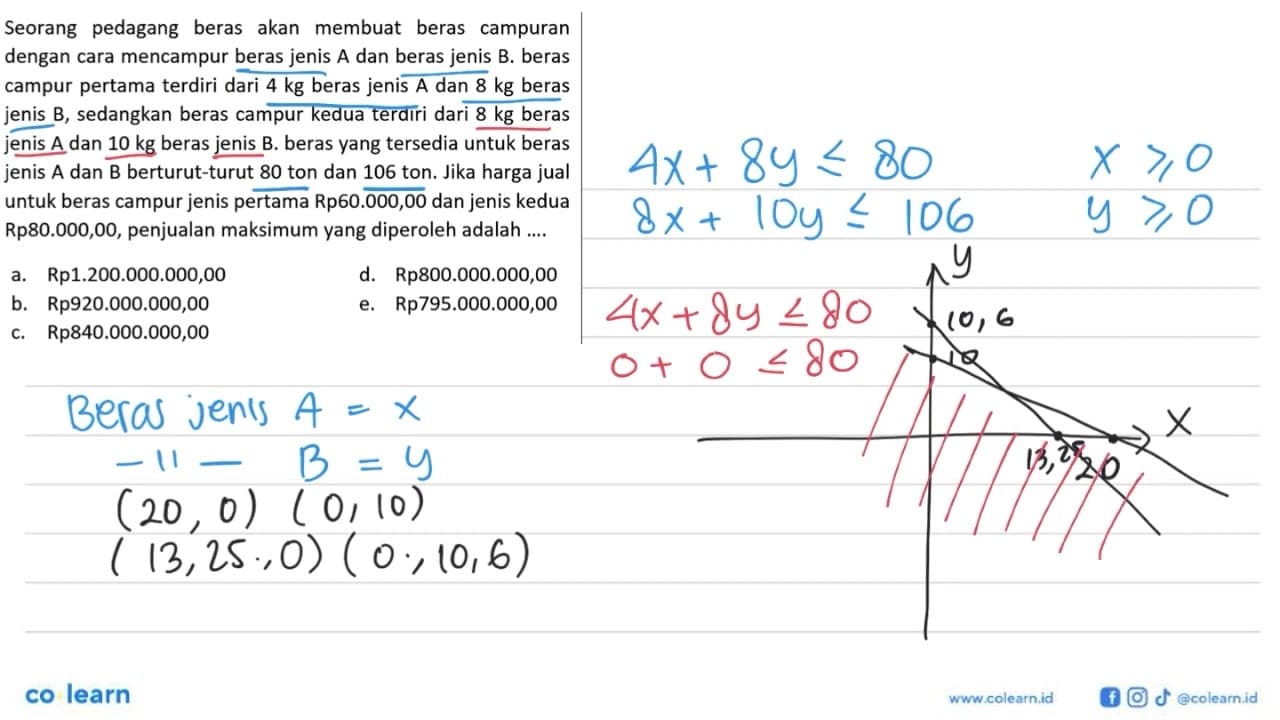 Seorang pedagang beras akan membuat beras campuran
dengan cara mencampur beras jenis A dan beras jenis B. beras
campur pertama terdiri dari 4 kg beras jenis A dan 8 kg beras
jenis B, sedangkan beras campur kedua terdiri dari 8 kg beras
jenis A dan 10 kg beras jenis B. beras yang tersedia untuk beras
jenis A dan B berturut-turut 80 ton dan 106 ton. Jika harga jual
untuk beras campur jenis pertama Rp60.000,00 dan jenis kedua
Rp80.000,00, penjualan maksimum yang diperoleh adalah ....
a. Rp1.200.000.000,00
b. Rp920.000.000,00
c. Rp840.000.000,00
d. Rp800.000.000,00
e. Rp795.000.000,00
Beras jenis A = x
-11- B = y
(20, 0) (0, 10)
(13,25., 0) (0., 10,6)
4x + 8y ≤ 80 x ≥ 0
8x + 10y ≤ 106 y ≥ 0
4x + 8y ≤ 80
0 + 0 ≤ 80
y
10,6
10
x
13,25
20
co learn
www.colearn.id
@colearn.id